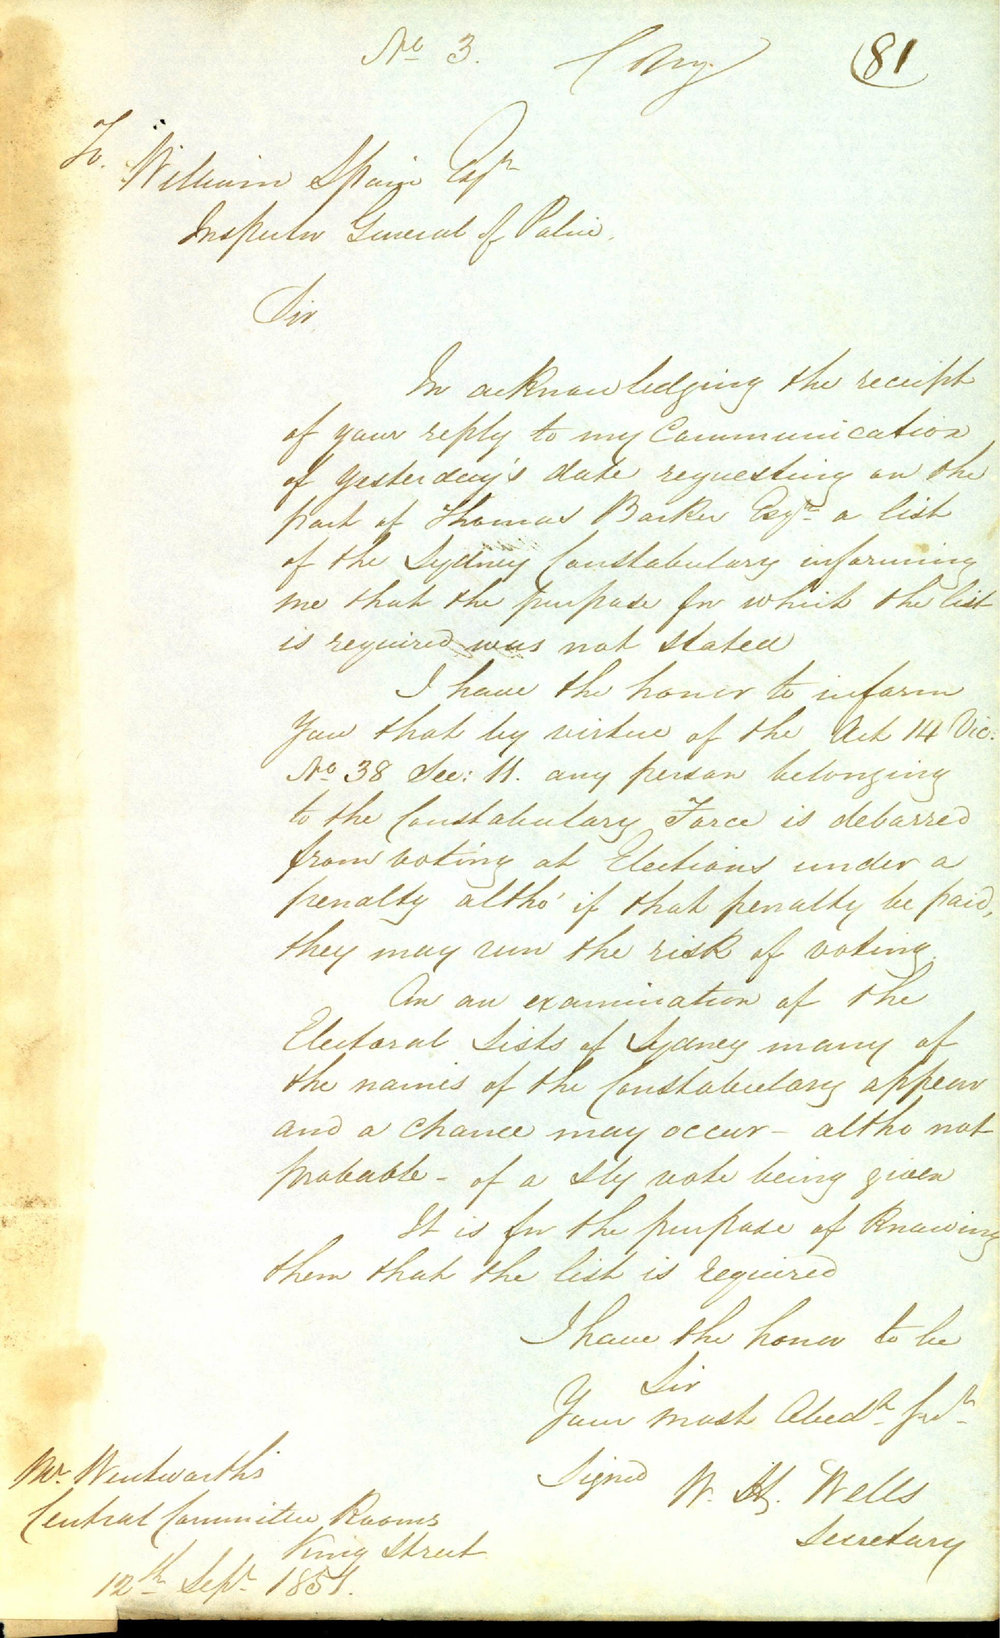 No 3. Copy 81
To William Spain Esqr
Inspector General of Police.
Sir
In acknowledging the receipt
of your reply to my Communication
of yesterday's date requesting on the
part of Thomas Barker Esqr a list
of the Sydney Constabulary informing
me that the purpose for which the list
is required was not stated
I have the honor to inform
you that by virtue of the Act 14 Vic:
No 38 Sec: 11. any person belonging
to the Constabulary Force is debarred
from voting at Elections under a
penalty altho' if that penalty be paid,
they may run the risk of voting.
On an examination of the
Electoral Lists of Sydney many of
the names of the Constabulary appear
and a chance may occur – altho not
probable – of a sly vote being given
It is for the purpose of knowing
them that the list is required
I have the honor to be
Sir
Your most Obedt Servt
Signed W. H. Wells
Secretary
Mr. Wentworth's
Central Committee Rooms
King Street
12th Sept 1851.